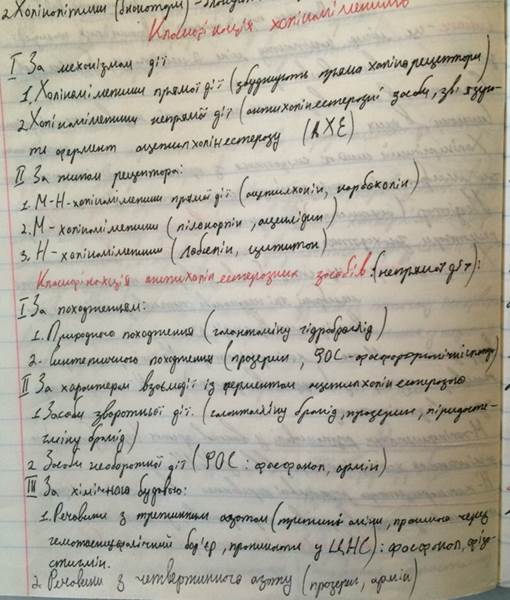 2. Холінолітики (блокатори) -
Класифікація холіноміметиків
I За механізмом дії
1. Холіноміметики прямої дії (збуджують прямо холінорецептори)
2. Холіноміметики непрямої дії (антихолінестеразні засоби, зв'язую-
ть фермент ацетилхолінестеразу (АХЕ)
II За типом рецептора:
1. М-Н-холіноміметики прямої дії (ацетилхолін, карбахолін)
2. М-холіноміметики (пілокарпін, ацеклідин)
3. Н-холіноміметики (лобелін, цититон)
Класифікація антихолінестеразних засобів (непрямої дії):
I За походженням:
1. Природного походження (галантаміну гідробромід)
2. Синтетичного походження (прозерин, ФОС-фосфорорганічні)
II За характером взаємодії із ферментом ацетилхолінестеразою
1. Засоби зворотньої дії. (галантаміну бромід, прозерин, піридости-
гміну бромід)
2. Засоби необоротної дії (ФОС: фосфакол, армін)
III За хімічною будовою:
1. Речовини з третинним азотом (третинні аміни, проникають через
гематоенцефалічний бар'єр, проникають у ЦНС): фосфакол, фізо-
стигмін.
2. Речовини з четвертинного азоту (прозерин, армін)